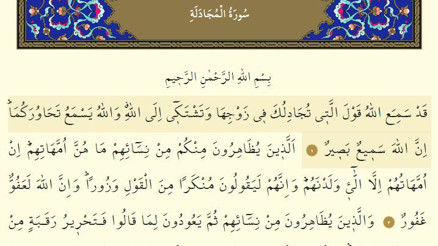 سُورَةُ الْمُجَادَلَةِ
بِسْمِ اللهِ الرَّحْمٰنِ الرَّحٖيمِ
قَدْ سَمِعَ اللهُ قَوْلَ الَّتٖي تُجَادِلُكَ فٖي زَوْجِهَا وَتَشْتَكٖٓي اِلَى اللهِۗ وَاللهُ يَسْمَعُ تَحَاوُرَكُمَاۜ
اِنَّ اللهَ سَمٖيعٌ بَصٖيرٌ ﴿١﴾ اَلَّذٖينَ يُظَاهِرُونَ مِنْكُمْ مِنْ نِسَٓائِهِمْ مَا هُنَّ اُمَّهَاتِهِمْۜ اِنْ
اُمَّهَاتُهُمْ اِلَّا الّٰٓئٖ وَلَدْنَهُمْۜ وَاِنَّهُمْ لَيَقُولُونَ مُنْكَرًا مِنَ الْقَوْلِ وَزُورًاۜ وَاِنَّ اللهَ لَعَفُوٌّ
غَفُورٌ ﴿٢﴾ وَالَّذٖينَ يُظَاهِرُونَ مِنْ نِسَٓائِهِمْ ثُمَّ يَعُودُونَ لِمَا قَالُوا فَتَحْرٖيرُ رَقَبَةٍ مِنْ